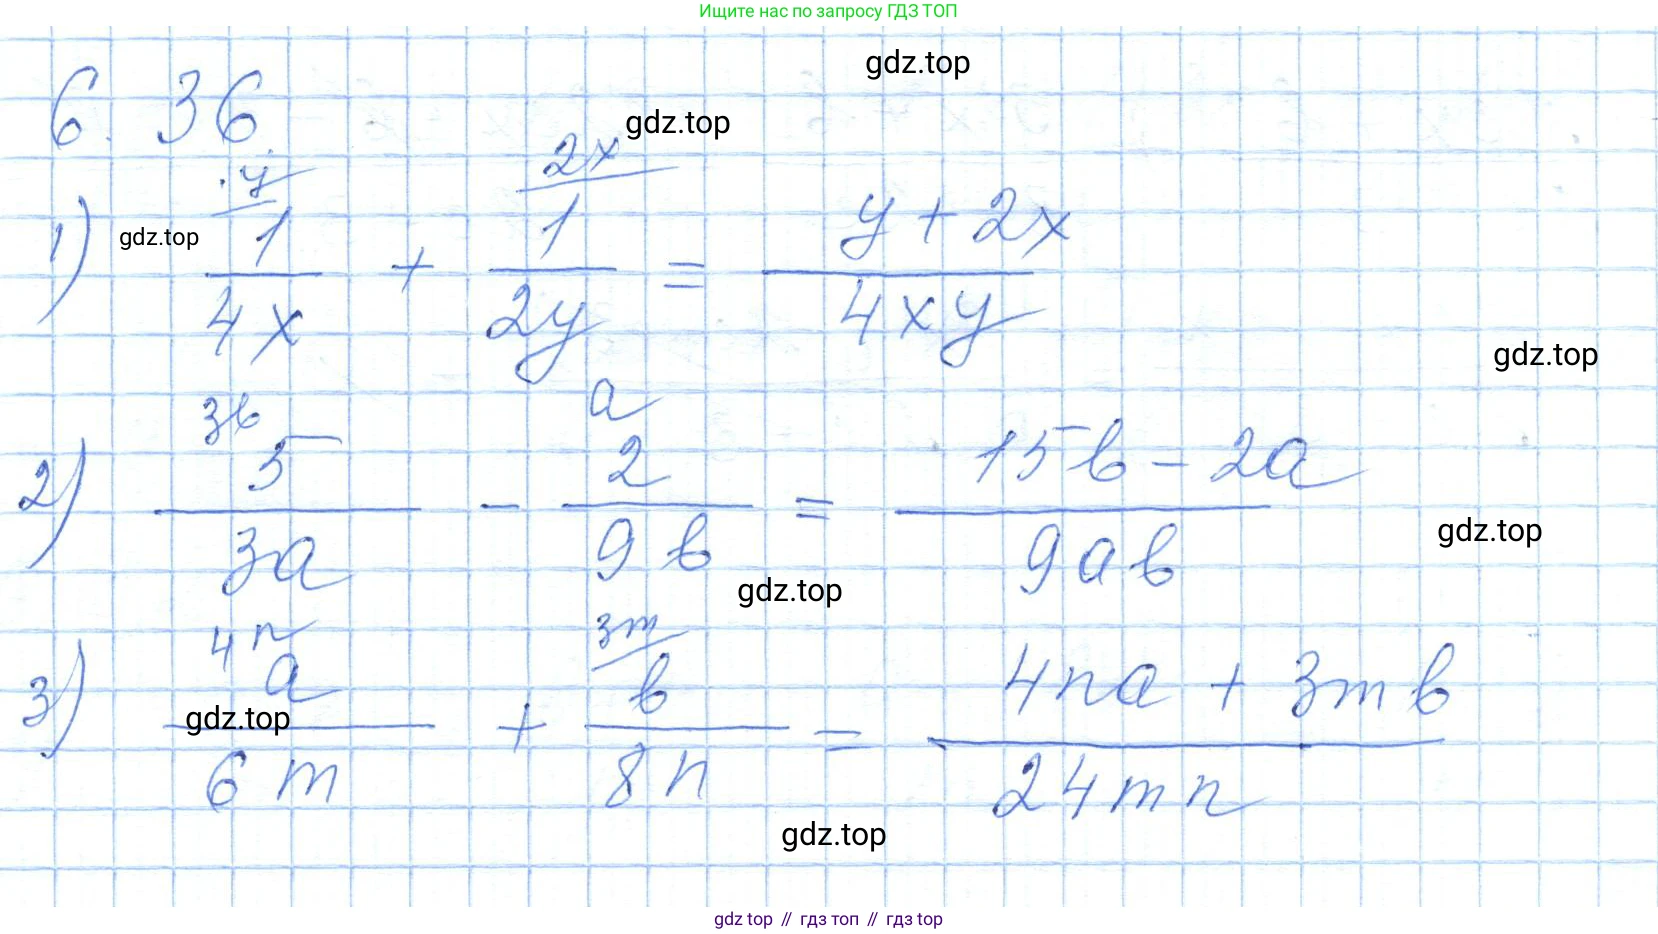 Ищите нас по запросу ГДЗ ТОП
gdz.top
6.36
gdz.top
1) y 1/4x + 2x 1/2y = y + 2x/4xy
gdz.top
gdz.top
2) 3b 5/3a - a 2/9b = 15b - 2a/9ab
gdz.top
gdz.top
3) 4n a/6m + 3m b/8n = 4na + 3mb/24mn
gdz.top
gdz.top
gdz top // гдз топ // gdz top